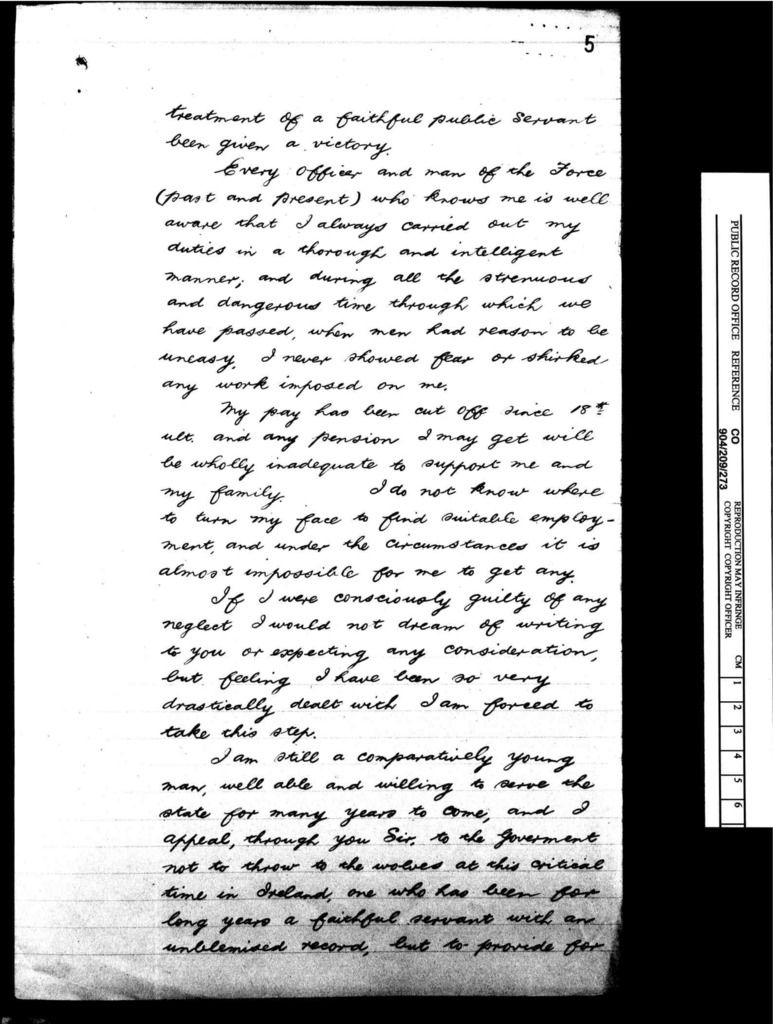 5
treatment of a faithful public servant
been given a victory.
Every officer and man of the Force
(past and present) who knows me is well
aware that I always carried out my
duties in a thorough and intelligent
manner; and during all the strenuous
and dangerous time through which we
have passed, when men had reason to be
uneasy, I never showed fear or shirked
any work imposed on me.
My pay has been cut off since 18th
ult. and any pension I may get will
be wholly inadequate to support me and
my family. I do not know where
to turn my face to find suitable employ-
ment, and under the circumstances it is
almost impossible for me to get any.
If I were consciously guilty of any
neglect I would not dream of writing
to you or expecting any consideration,
but feeling I have been so very
drastically dealt with I am forced to
take this step.
I am still a comparatively young
man, well able and willing to serve the
state for many years to come, and I
appeal, through you Sir, to the Goverment
not to throw to the wolves at this critical
time in Ireland, one who has been for
long years a faithful servant with an
unblemised record, but to provide for
PUBLIC RECORD OFFICE REFERENCE CO
904/209/273
REPRODUCTION MAY INFRINGE
COPYRIGHT COPYRIGHT OFFICER
CM 1 2 3 4 5 6